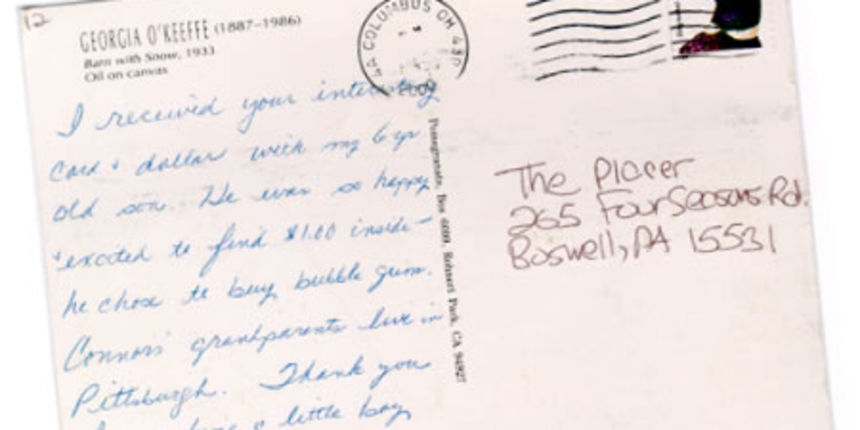 12
GEORGIA O'KEEFFE (1887–1986)
Barn with Snow, 1933
Oil on canvas
COLUMBUS OH 430
I received your interesting
card + dollar with my 6 yr
old son. He was so happy
+ excited to find $1.00 inside—
he chose to buy bubble gum.
Connors' grandparents live in
Pittsburgh. Thank you
a little boy
Pomegranate, Box 6099, Rohnert Park, CA 94927
The Placer
265 Four Seasons Rd.
Boswell, PA 15531